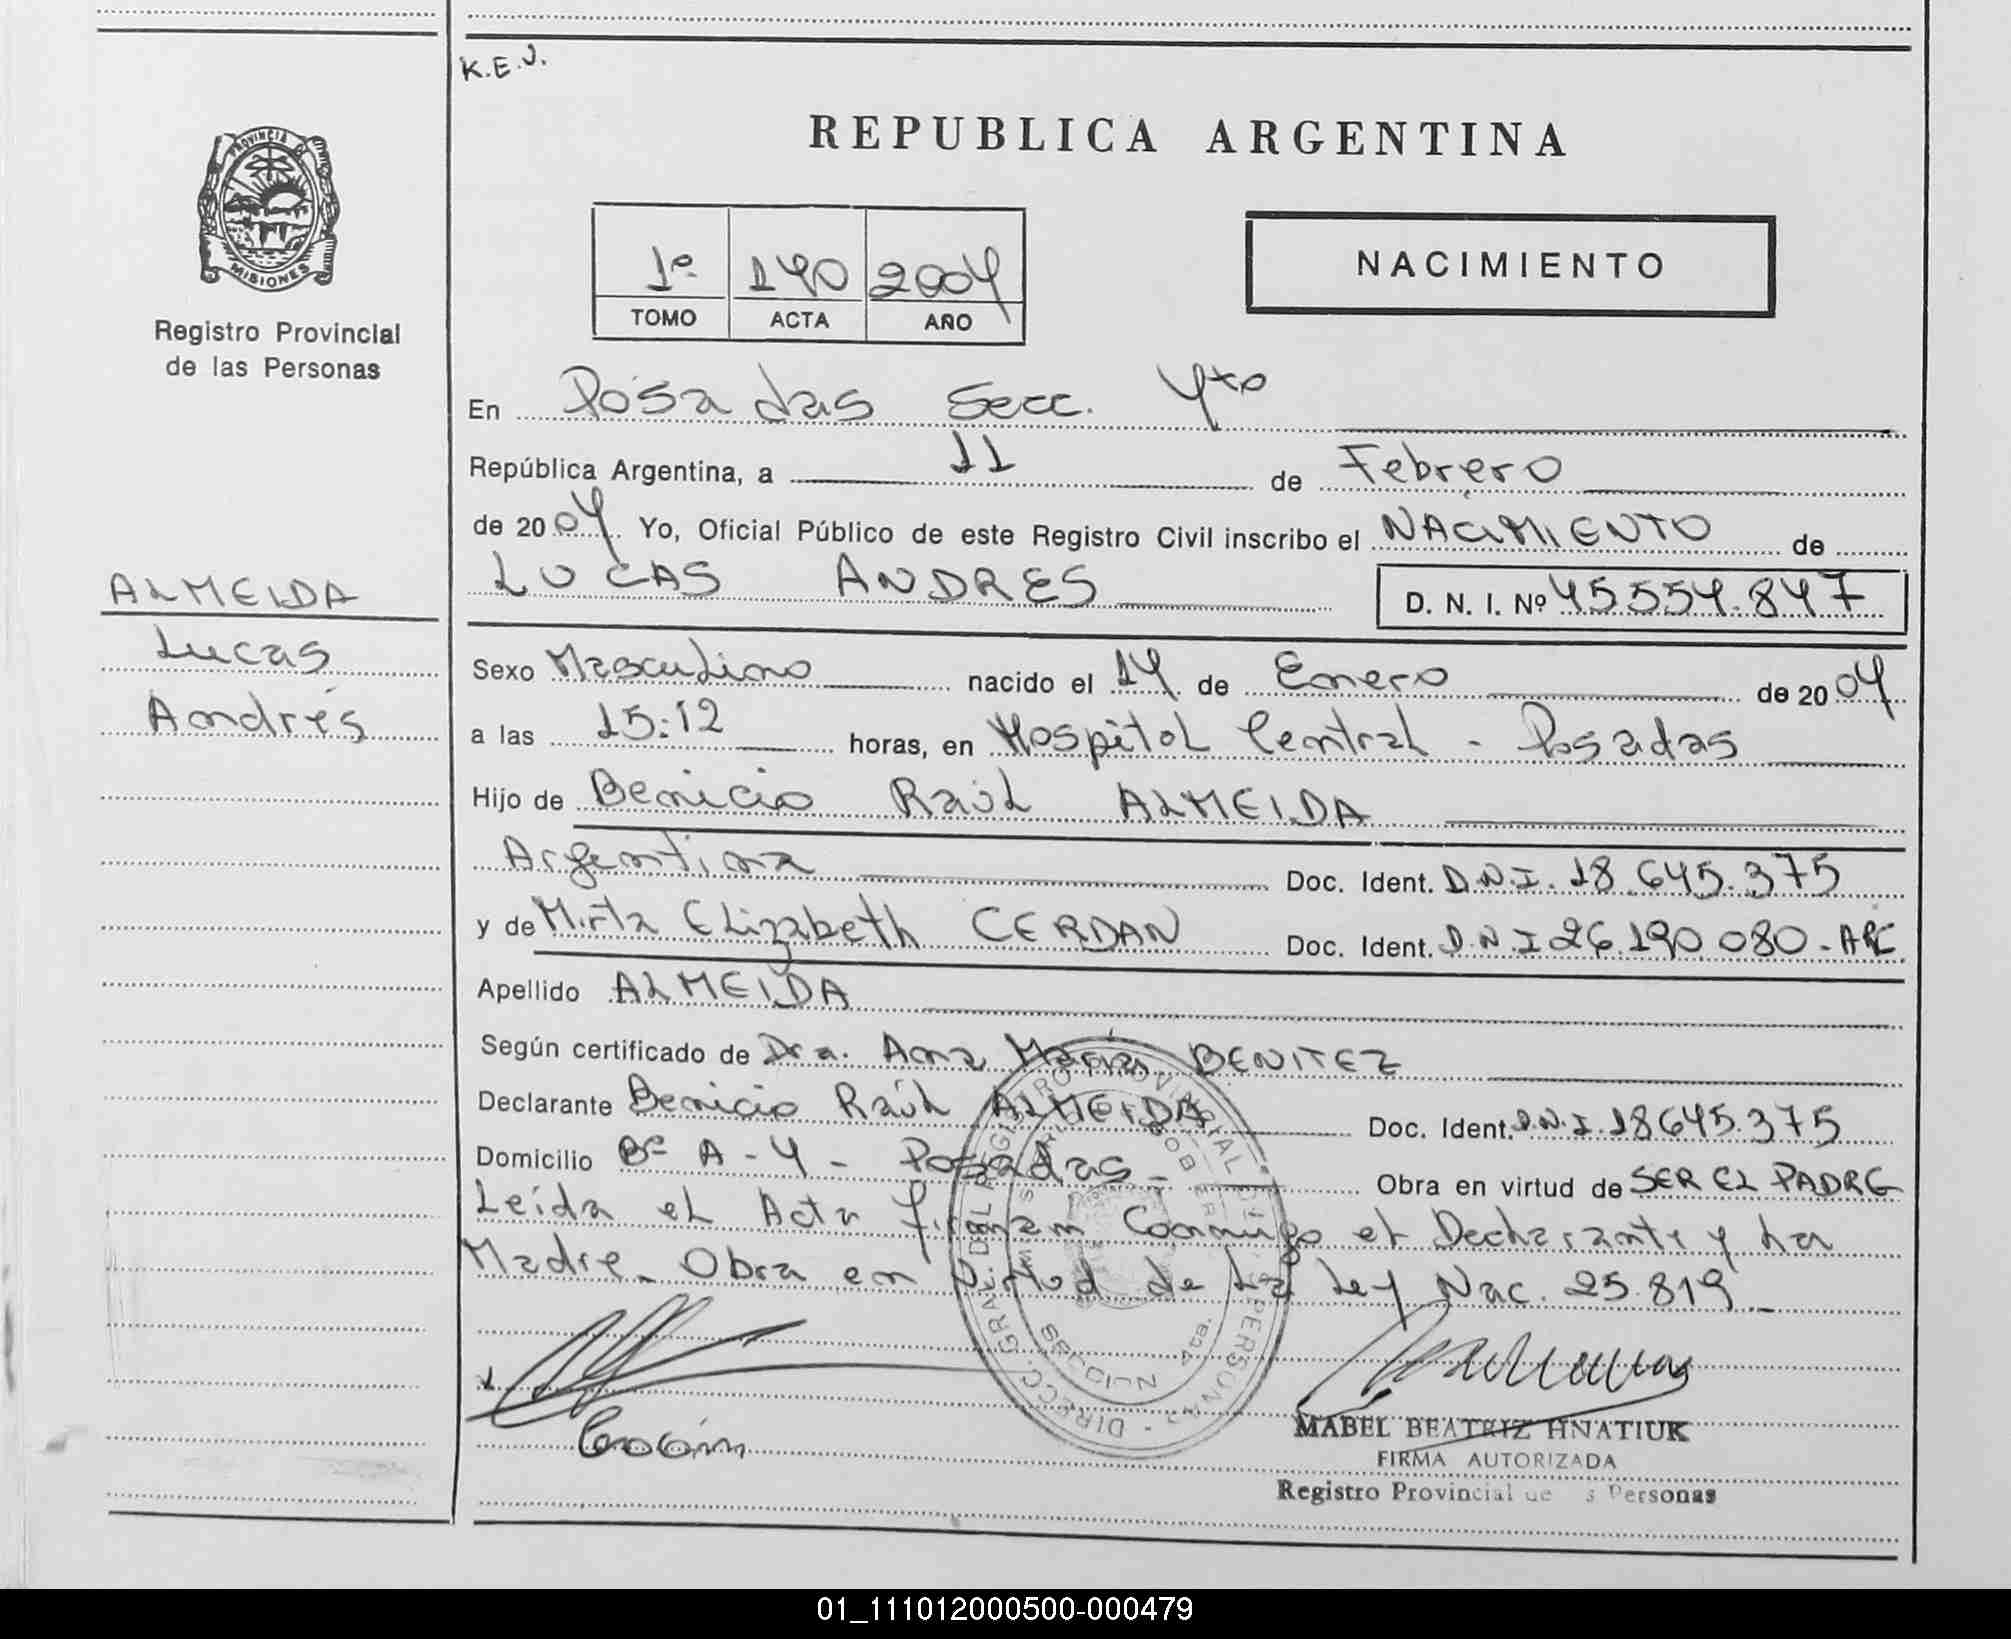 K.E.J.
REPUBLICA ARGENTINA
PROVINCIA
MISIONES
Registro Provincial
de las Personas
1º 140 2004
TOMO ACTA AÑO
NACIMIENTO
En Posadas Secc. 4to
República Argentina, a 11 de Febrero
de 2004 Yo, Oficial Público de este Registro Civil inscribo el NACIMIENTO de
LUCAS ANDRES D. N. I. Nº 45554.847
ALMEIDA
Lucas
Andrés
Sexo Masculino nacido el 14 de Enero de 2004
a las 15:12 horas, en Hospital Central - Posadas
Hijo de Benicio Raúl ALMEIDA
Argentina Doc. Ident. D.N.I. 18.645.375
y de Mirta Elizabeth CERDAN Doc. Ident. D.N.I 26.190.080-ARG.
Apellido ALMEIDA
Según certificado de Dra. Ana María BENITEZ
Declarante Benicio Raúl ALMEIDA Doc. Ident. D.N.I. 18645.375
Domicilio Bº A-4 - Posadas - Obra en virtud de SER EL PADRE
Leída el Acta firman Conmigo el Declarante y La
Madre. Obra en virtud de La Ley Nac. 25.819_
MABEL BEATRIZ HNATIUK
FIRMA AUTORIZADA
Registro Provincial de s Personas
01_111012000500-000479